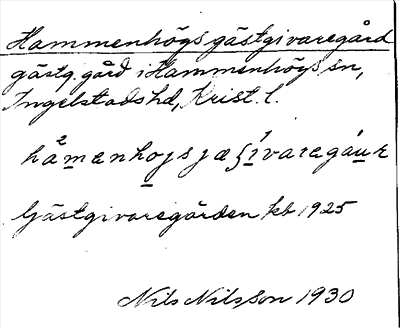 Hammenhögs gästgivaregård
gästg. gård i Hammenhögs sn,
Ingelstads hd, Krist. l.
Gästgivaregården kb 1925
Nils Nilsson 1930